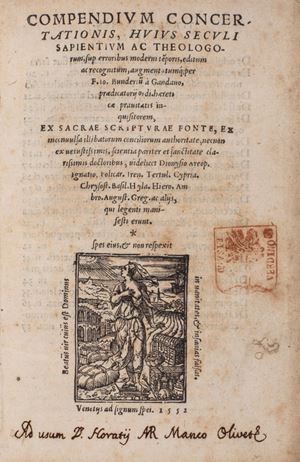 COMPENDIVM CONCER-
TATIONIS, HVIVS SECVLI
SAPIENTIVM AC THEOLOGO-
rum, sup erroribus moderni tēporis, editum
ac recognitum, augmentatumq; per
F. Io. Bunderiū à Gandauo,
prædicatorij ordi. hereti
cæ prauitatis in-
quisitorem,
EX SACRAE SCRIPTVRAE FONTE, EX
inconuulsa illibatorum conciliorum authoritate, necnon
ex uetustissimis, scientia pariter et sanctitate cla-
rissimis doctoribus, uidelicet Dionysio Areop.
Ignatio, Policar. Iren. Tertul. Cypria.
Chrysost. Basil. Hyla. Hiero. Am
bro. August. Greg. ac alijs,
qui legenti mani-
festi erunt.
*
spes eius, & non respexit
Beatus uir cuius est Dominus
in uanitates, & insanias falsas.
Venetijs ad signum spei. 1552
Ad usum D. Horatij Manco Oliveth